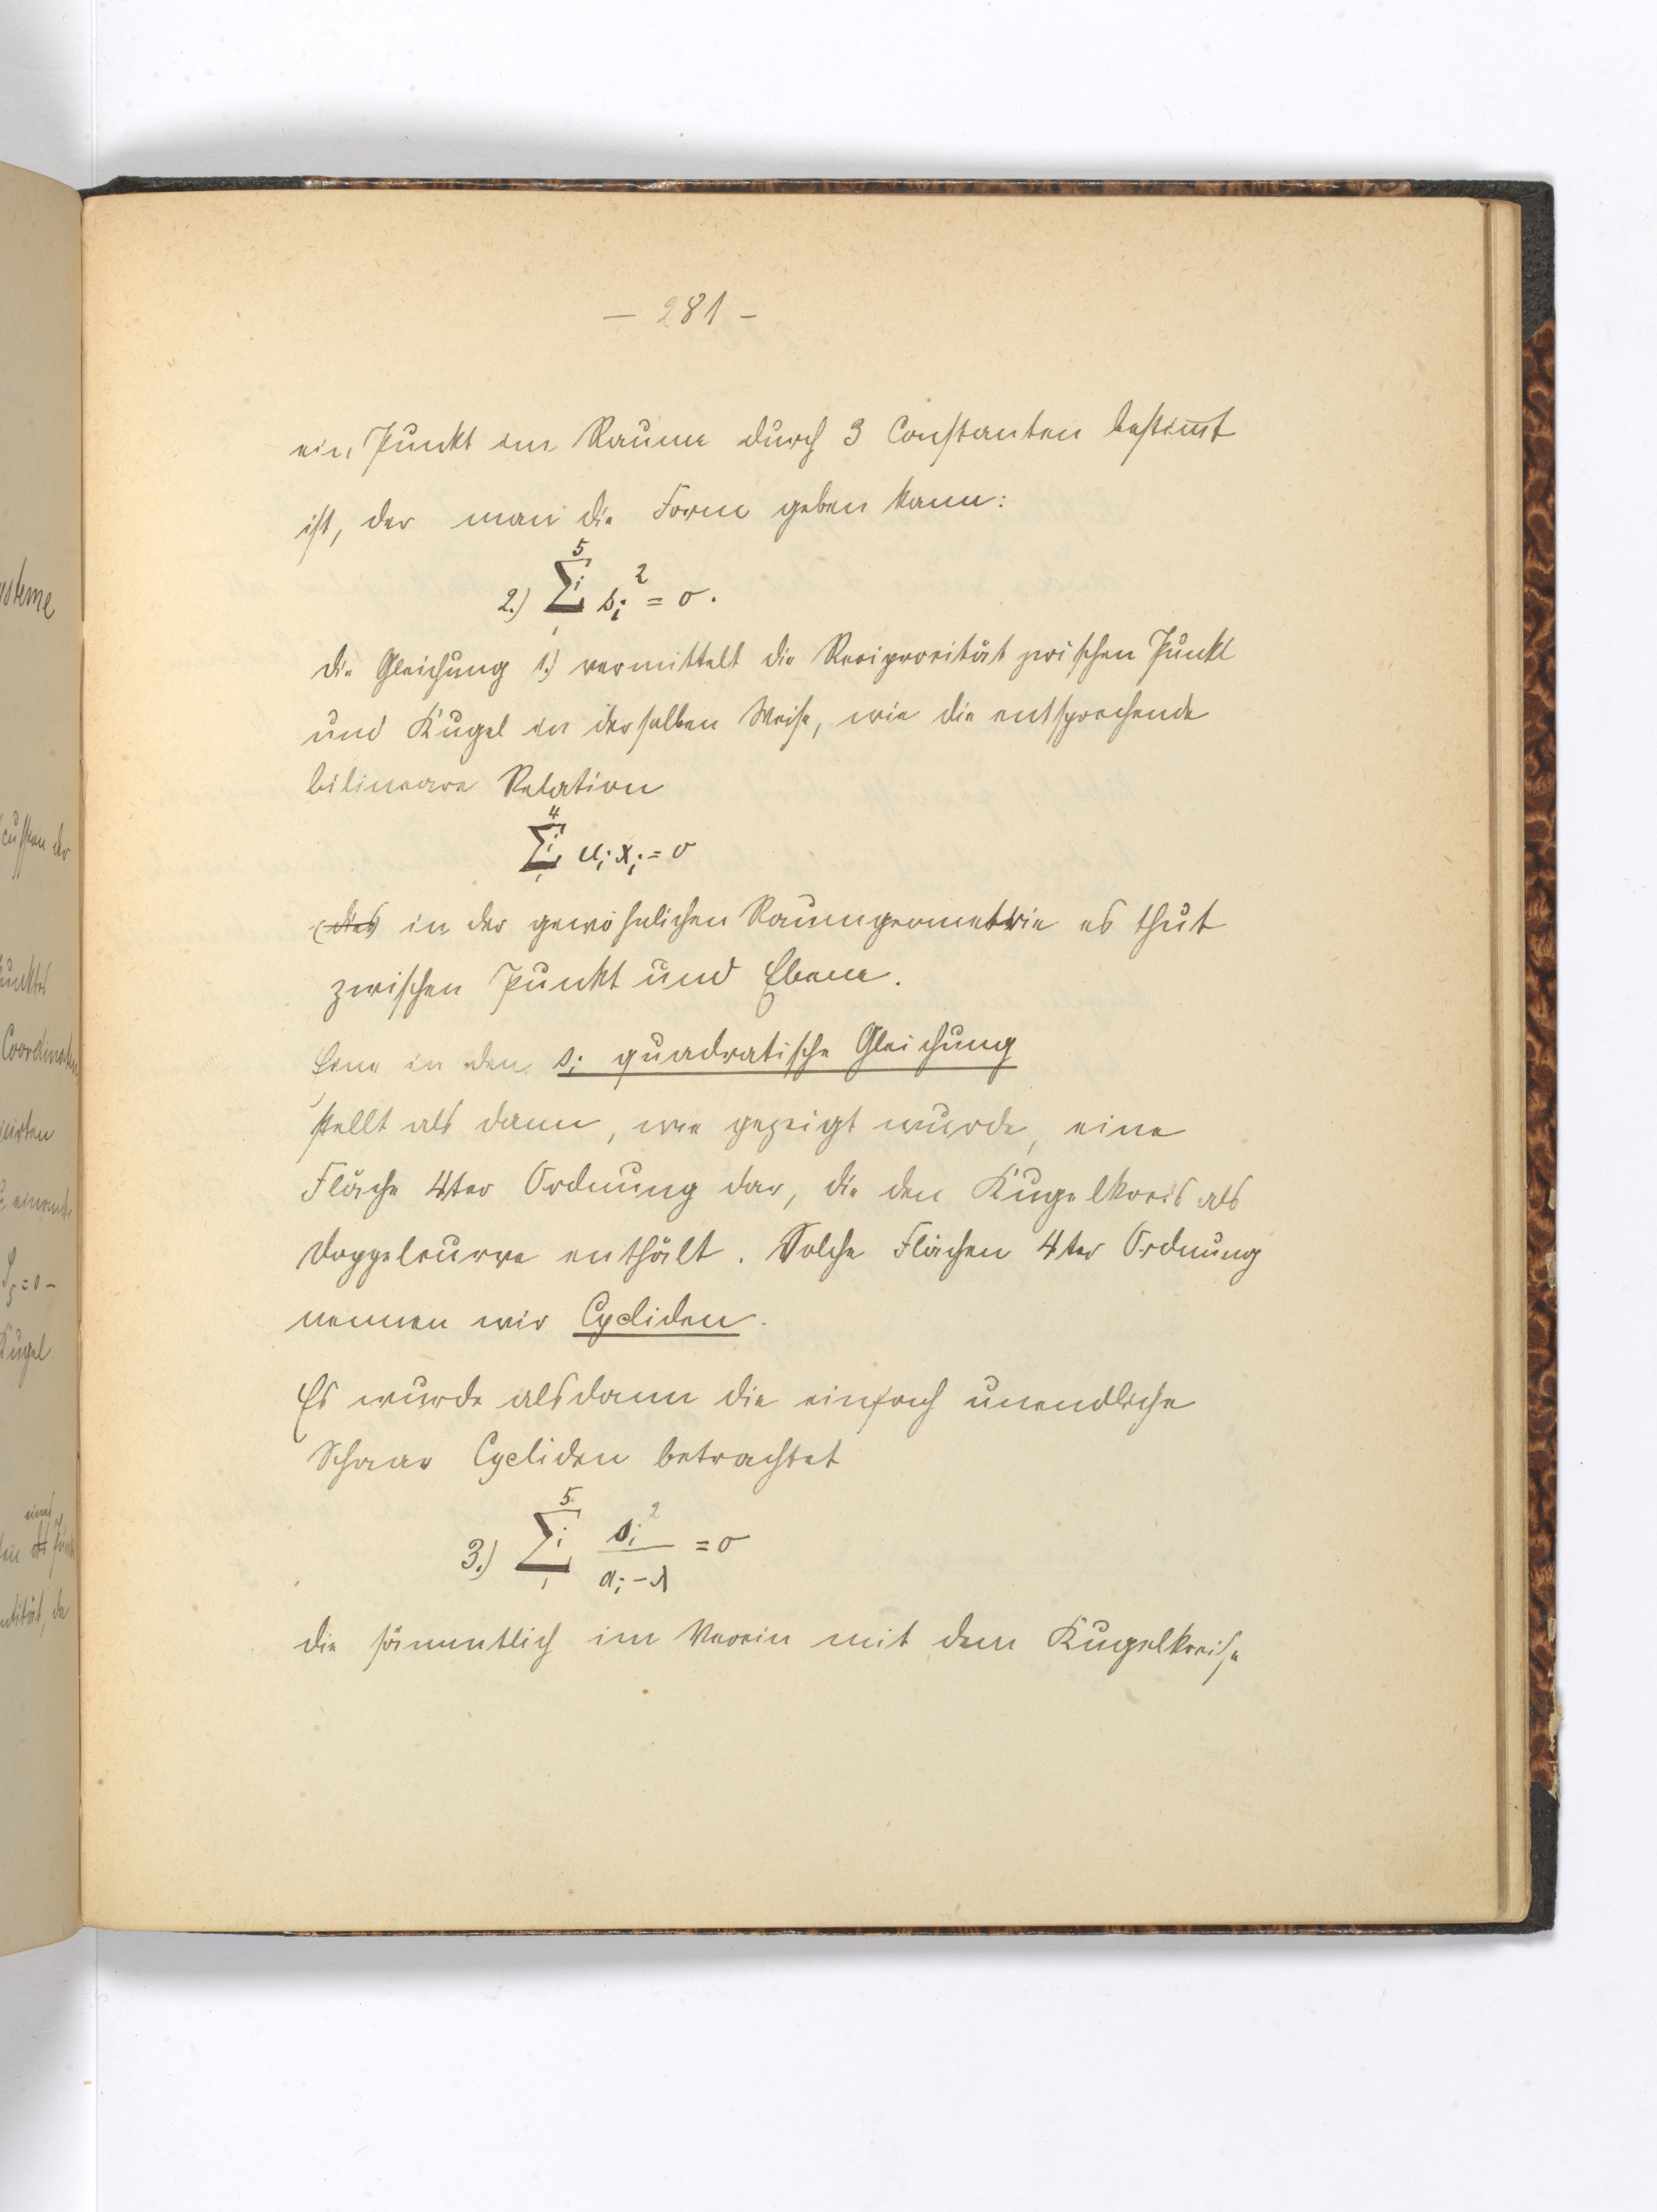 — 281 —
ein Punkt im Raume durch 3 Constanten bestimmt
ist, der man die Form geben kann:
2.) \sum_{1}^{5}{}_i s_i^2 = 0.
die Gleichung 1.) vermittelt die Reciprocität zwischen Punkt
und Kugel in derselben Weise, wie die entsprechende
bilineare Relation
\sum_{1}^{4}{}_i u_i x_i = 0
(des) in der gewöhnlichen Raumgeometrie es thut
zwischen Punkt und Ebene.
Eine in den s_i quadratische Gleichung
stellt als dann, wie gezeigt wurde, eine
Fläche 4ter Ordnung dar, die den Kugelkreis als
Doppelcurve enthält. Solche Flächen 4ter Ordnung
nennen wir Cycliden.
Es wurde alsdann die einfach unendliche
Schaar Cycliden betrachtet
3.) \sum_{1}^{5}{}_i \frac{s_i^2}{a_i - λ} = 0
die sämmtlich im Verein mit dem Kugelkreise